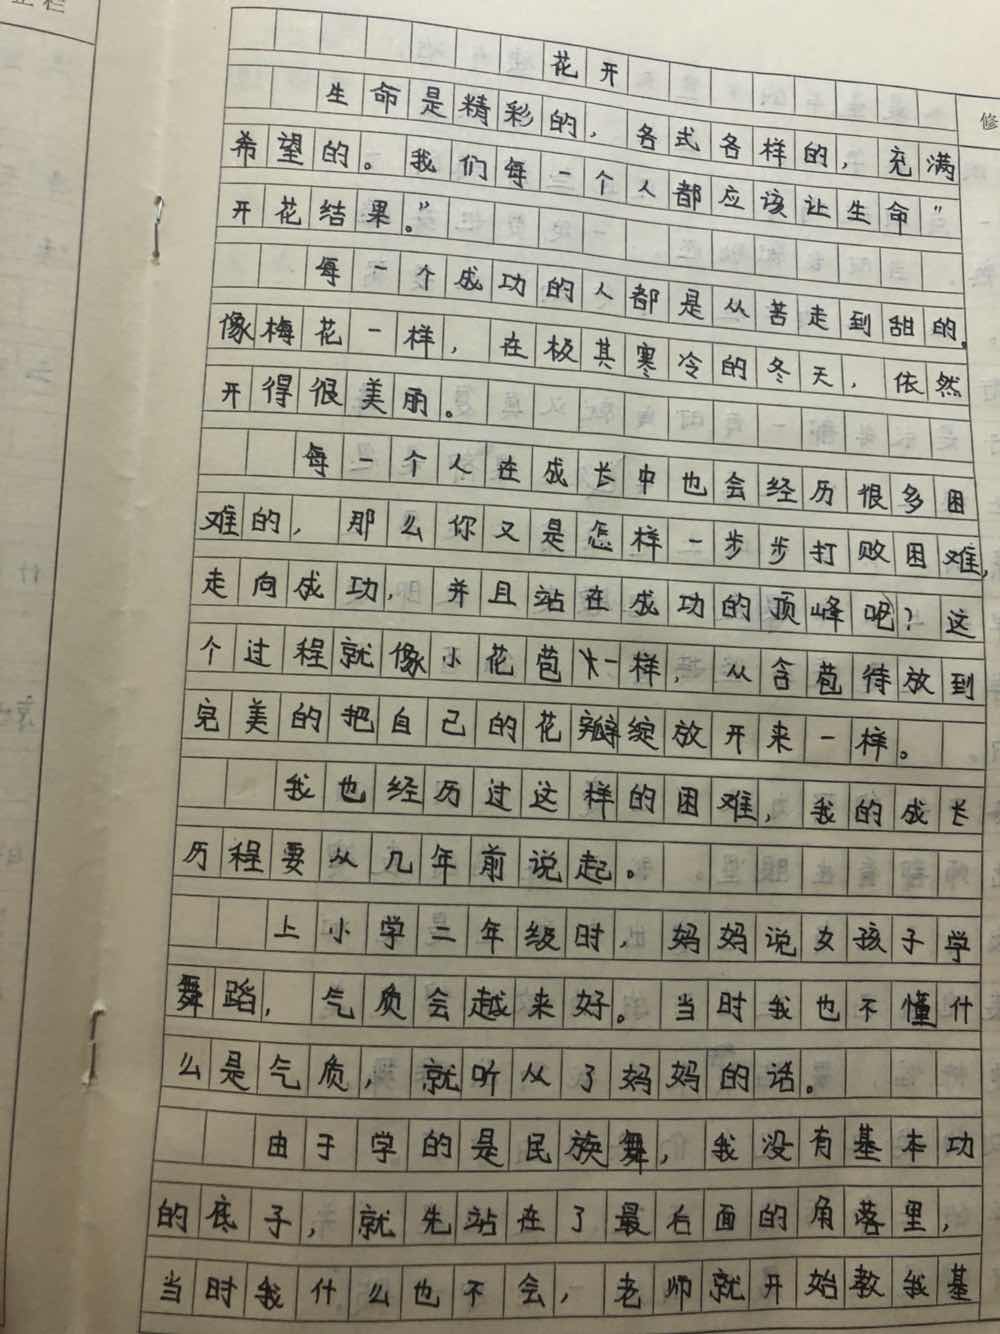 正栏
修
花开
生命是精彩的，各式各样的，充满
希望的。我们每一个人都应该让生命"
开花结果。"
每一个成功的人都是从苦走到甜的。
像梅花一样，在极其寒冷的冬天，依然
开得很美丽。
每一个人在成长中也会经历很多困
难的，那么你又是怎样一步步打败困难，
走向成功，并且站在成功的顶峰呢？这
个过程就像小花苞一样，从含苞待放到
完美的把自己的花瓣绽放开来一样。
我也经历过这样的困难，我的成长
历程要从几年前说起。
上小学二年级时，妈妈说女孩子学
舞蹈，气质会越来好。当时我也不懂什
么是气质，就听从了妈妈的话。
由于学的是民族舞，我没有基本功
的底子，就先站在了最后面的角落里，
当时我什么也不会，老师就开始教我基